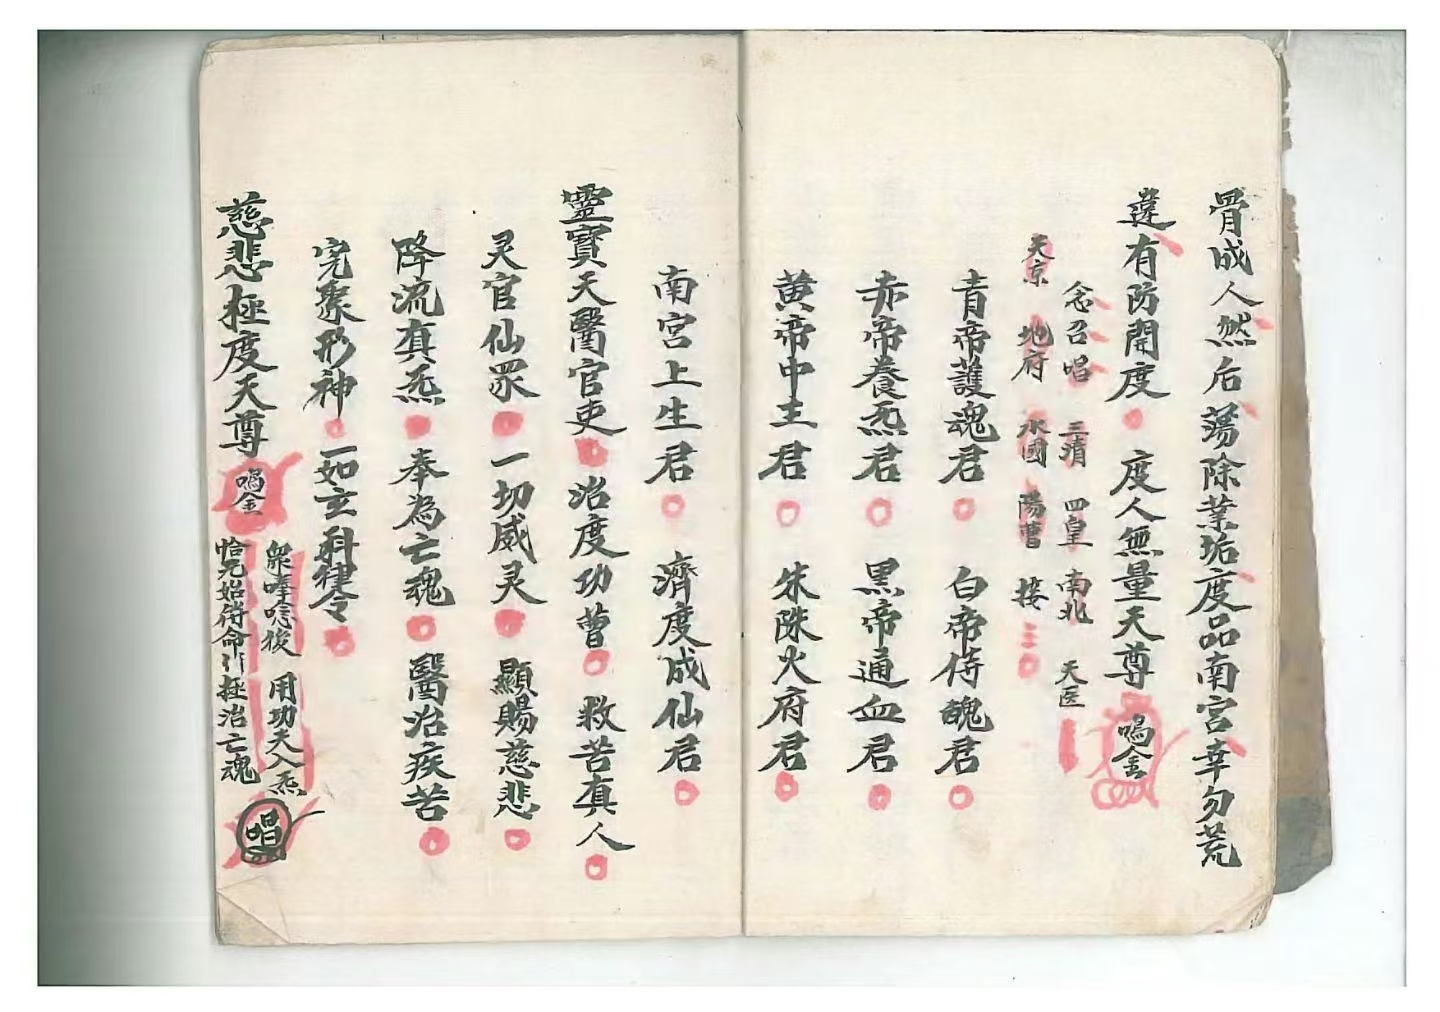 骨成人然后蕩除業垢度品南宮幸勿荒
違有防開度 度人無量天尊 鳴金
念召唱 三清 四皇 南北 天医
天京 地府 水國 陽曹 接 三
青帝護魂君 白帝侍魄君
赤帝養炁君 黑帝通血君
黄帝中主君 朱陵火府君
南宮上生君 濟度成仙君
靈寶天醫官吏 治度功曹 救苦真人
灵官仙眾 一切威灵 顯賜慈悲
降流真炁 奉為亡魂 醫治疾苦
完聚形神 一如玄科律令
慈悲極度天尊 鳴金
眾唪唸後 用功天入炁
恰元始符命 拯治亡魂
唱